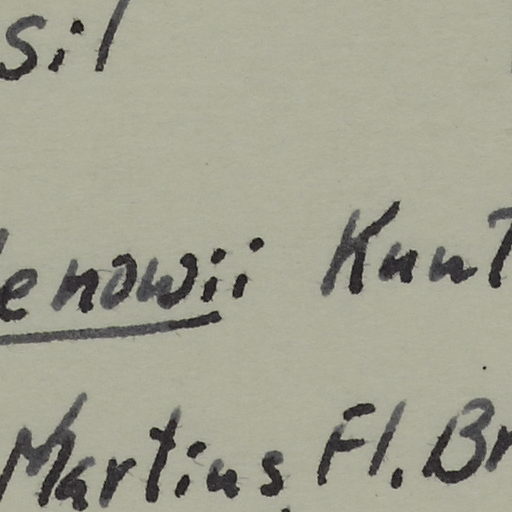 sil
lenowii Kunt
Martius Fl. Br